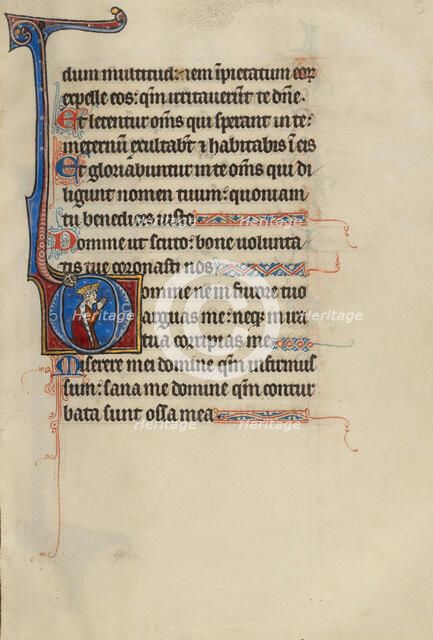 dium multitudinem impietatum eoꝝ
expelle eos: qm̄ irritaverūt te dn̄e.
Et letentur om̄s qui sperant in te:
in eternū exultabūt & habitabis ī eis
Et gloriabuntur in te om̄s qui di
ligunt nomen tuum: quoniam
tu benedices iusto
Domine ut scuto: bone volunta
tis tue coronasti nos
Domine ne in furore tuo
arguas me: neqꝫ in ira
tua corripias me
Miserere mei domine qm̄ infirmus
sum: sana me domine qm̄ contur
bata sunt ossa mea
Heritage Heritage
Heritage
Heritage Heritage